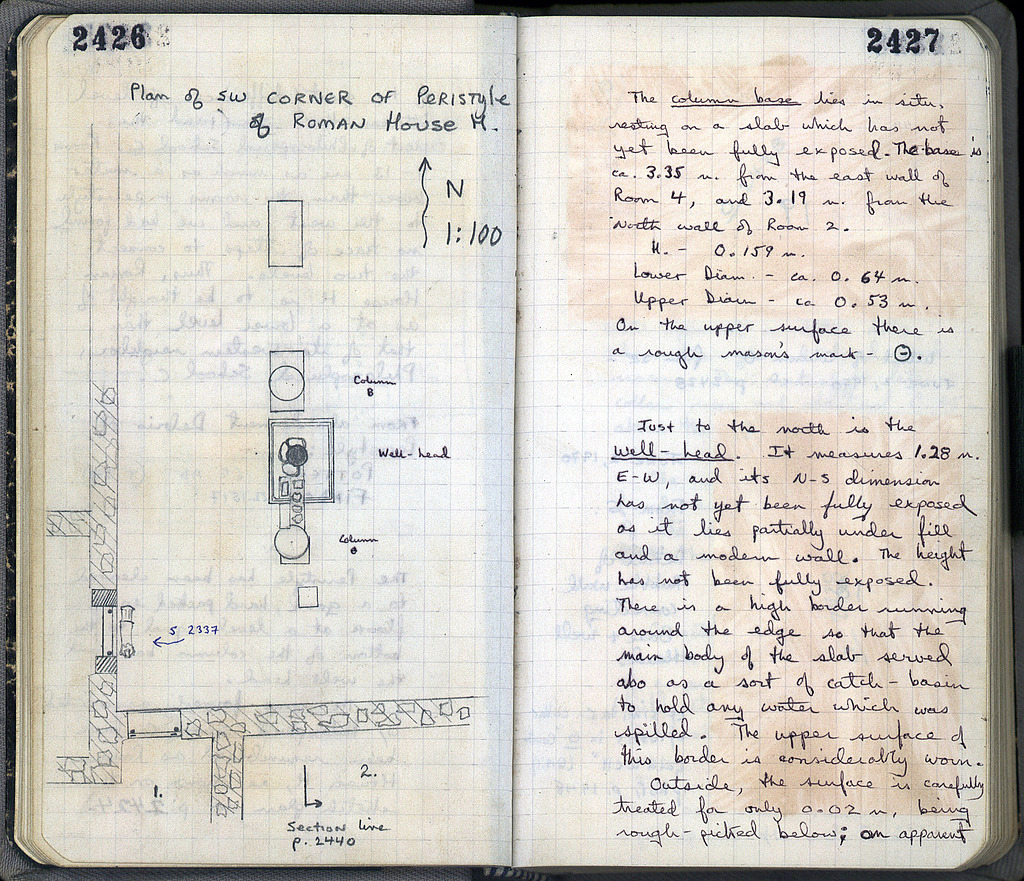 2426
Plan of SW CORNER OF PERISTYLE
of ROMAN HOUSE H.
N
1:100
Column
B
Well-head
Column
S 2337
1.
2.
Section line
p. 2440
2427
The column base lies in situ,
resting on a slab which has not
yet been fully exposed. The base is
ca. 3.35 m. from the east wall of
Room 4, and 3.19 m. from the
north wall of Room 2.
H. - 0.159 m.
Lower Diam. - ca. 0.64 m.
Upper Diam - ca 0.53 m.
On the upper surface there is
a rough mason's mark - Θ.
Just to the north is the
well-head. It measures 1.28 m.
E-W, and its N-S dimension
has not yet been fully exposed
as it lies partially under fill
and a modern wall. The height
has not been fully exposed.
There is a high border running
around the edge so that the
main body of the slab served
also as a sort of catch-basin
to hold any water which was
spilled. The upper surface of
this border is considerably worn.
Outside, the surface is carefully
treated for only 0.02 m, being
rough-picked below; an apparent